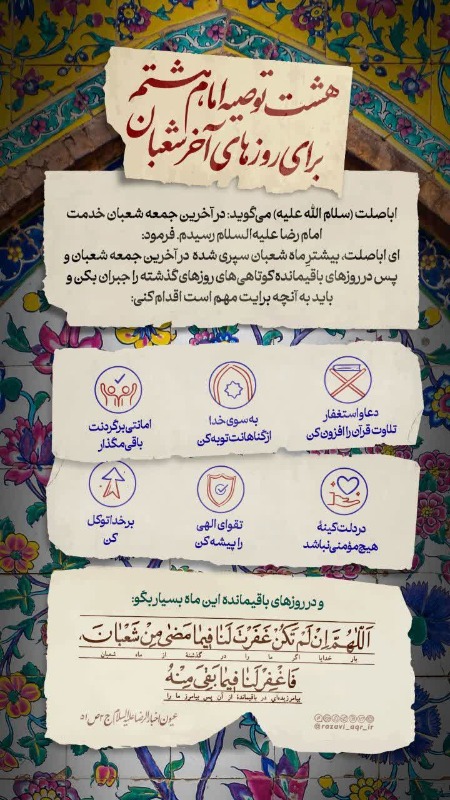 هشت توصیه امام هشتم
برای روزهای آخر شعبان
اباصلت (سلام الله علیه) می‌گوید: در آخرین جمعه شعبان خدمت
امام رضا علیه‌السلام رسیدم. فرمود:
ای اباصلت، بیشتر ماه شعبان سپری شده در آخرین جمعه شعبان و
پس در روزهای باقیمانده کوتاهی‌های روزهای گذشته را جبران بکن و
باید به آنچه برایت مهم است اقدام کنی:
دعا و استغفار
تلاوت قرآن را افزون کن
به سوی خدا
از گناهانت توبه کن
امانتی بر گردنت
باقی مگذار
در دلت کینهٔ
هیچ مؤمنی نباشد
تقوای الهی
را پیشه کن
بر خدا توکل
کن
و در روزهای باقیمانده این ماه بسیار بگو:
اَللّهُمَّ اِنْ لَمْ تَکُنْ غَفَرْتَ لَنا فیما مَضیٰ مِنْ شَعْبانَ،
بار خدایا اگر ما را در گذشتهٔ از ماه شعبان
فَاغْفِرْ لَنا فیما بَقِیَ مِنْهُ
نیامرزیده‌ای در باقیماندهٔ از آن پس بیامرز ما را
عیون اخبار الرضا علیه‌السلام ج۲ ص۵۱
@razavi_aqr_ir